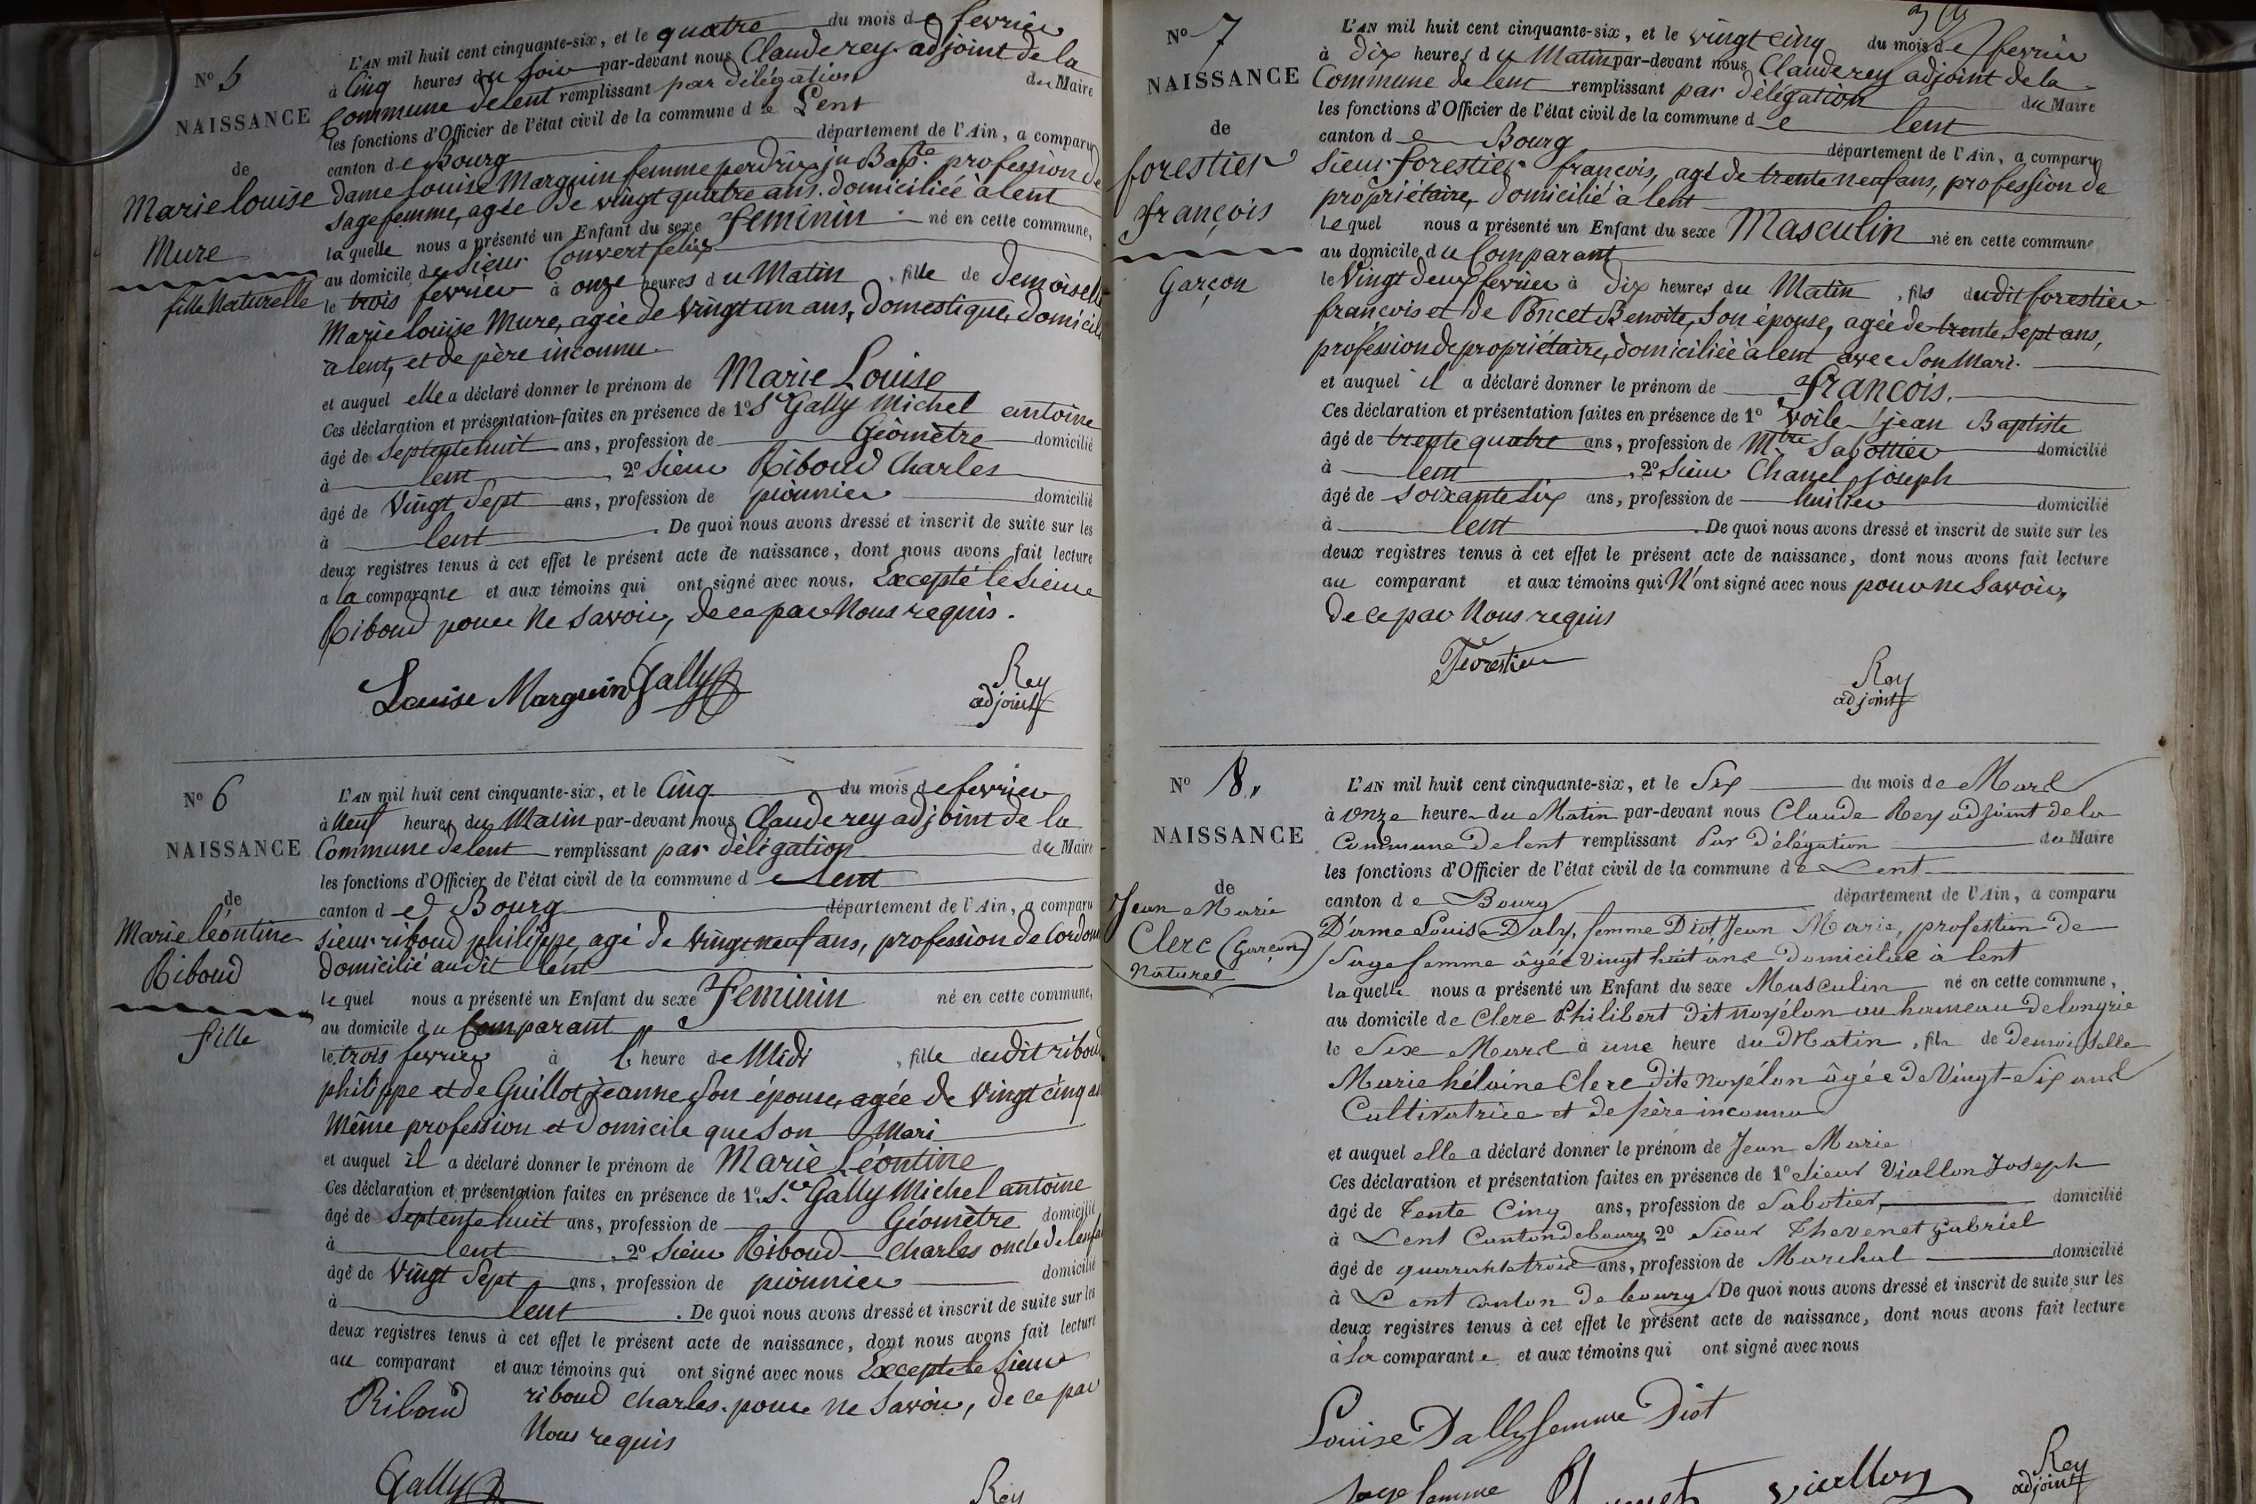 N° 5
NAISSANCE
de
Marie louise
Mure
fille Naturelle
L'AN mil huit cent cinquante-six, et le quatre du mois de fevrier
à Cinq heures du soir par-devant nous Claude rey adjoint de la
Commune de lent remplissant par délégation du Maire
les fonctions d'Officier de l'état civil de la commune de Lent
canton de Bourg département de l'Ain, a comparu
dame Louise Marguin femme perdrix jn Bapte. profession de
sage femme, agée de vingt quatre ans. domiciliée à lent
laquelle nous a présenté un Enfant du sexe Feminin né en cette commune,
au domicile de sieur Convert felix
le trois fevrier à onze heures du Matin, fille de demoiselle
Marie louise Mure, agée de vingt un ans, domestique, domicil
à lent, et de père inconnu
et auquel elle a déclaré donner le prénom de Marie Louise
Ces déclaration et présentation faites en présence de 1° Sr Gally Michel antoine
âgé de septente huit ans, profession de Géomètre domicilié
à lent 2° Sieur Riboud Charles
âgé de Vingt Sept ans, profession de pionnier domicilié
à lent. De quoi nous avons dressé et inscrit de suite sur les
deux registres tenus à cet effet le présent acte de naissance, dont nous avons fait lecture
a la comparante et aux témoins qui ont signé avec nous, Excepté le Sieur
Riboud pour ne savoir, de ce par Nous requis.
Louise Marguin Gally
Rey
adjoint
N° 6
NAISSANCE
de
Marie léontine
Riboud
fille
L'AN mil huit cent cinquante-six, et le Cinq du mois de fevrier
à Neuf heures du Matin par-devant nous Claude rey adjoint de la
Commune de lent remplissant par délégation du Maire
les fonctions d'Officier de l'état civil de la commune de lent
canton de Bourg département de l'Ain, a comparu
sieur riboud philippe, agé de vingt neuf ans, profession de Cordon
domicilié audit lent
lequel nous a présenté un Enfant du sexe Feminin né en cette commune,
au domicile du Comparant
le trois fevrier à l' heure de Midi, fille dudit riboud
philippe et de Guillot jeanne son épouse, agée de vingt cinq an
Même profession et domicile que son Mari
et auquel il a déclaré donner le prénom de Marie Léontine
Ces déclaration et présentation faites en présence de 1° Sr Gally Michel antoine
âgé de septente huit ans, profession de Géomètre domicilié
à lent, 2° Sieur Riboud Charles oncle de lenfa
âgé de Vingt Sept ans, profession de pionnier domicilié
à lent. De quoi nous avons dressé et inscrit de suite sur les
deux registres tenus à cet effet le présent acte de naissance, dont nous avons fait lecture
au comparant et aux témoins qui ont signé avec nous Excepté le Sieur
riboud charles. pour ne Savoir, de ce par
Nous requis
Riboud
Gally
Rey
N° 7
NAISSANCE
de
forestier
françois
Garçon
L'AN mil huit cent cinquante-six, et le vingt cinq du mois de fevrier
à dix heures du Matin par-devant nous Claude rey adjoint de la
Commune de lent remplissant par délégation du Maire
les fonctions d'Officier de l'état civil de la commune de lent
canton de Bourg département de l'Ain, a comparu
Sieur forestier françois, agé de trente neuf ans, profession de
propriétaire, domicilié à lent
Lequel nous a présenté un Enfant du sexe Masculin né en cette commune
au domicile du Comparant
le Vingt deux fevrier à dix heures du Matin, fils dudit forestier
françois et de Poncet Benoite, Son épouse, agée de trente Sept ans,
profession de propriétaire, domiciliée à lent avec Son Mari.
et auquel il a déclaré donner le prénom de François.
Ces déclaration et présentation faites en présence de 1° Voile jean Baptiste
âgé de trente quatre ans, profession de Mtre Sabottier domicilié
à lent, 2° Sieur Chanel joseph
âgé de soixante six ans, profession de huilier domicilié
à lent. De quoi nous avons dressé et inscrit de suite sur les
deux registres tenus à cet effet le présent acte de naissance, dont nous avons fait lecture
au comparant et aux témoins qui N'ont signé avec nous pour ne Savoir,
de ce par Nous requis
Forestier
Rey
adjoint
N° 8
NAISSANCE
de
Jean Marie
Clerc (Garçon)
Naturel
L'AN mil huit cent cinquante-six, et le Six du mois de Mars
à onze heure du Matin par-devant nous Claude Rey adjoint de la
Commune de lent remplissant Par Délégation du Maire
les fonctions d'Officier de l'état civil de la commune de Lent
canton de Bourg département de l'Ain, a comparu
Dame Louise Daly, femme Diot Jean Marie, profession de
Sage femme âgée vingt huit ans Domiciliée à lent
laquelle nous a présenté un Enfant du sexe Masculin né en cette commune,
au domicile de Clerc Philibert dit noyélon au hameau de longrie
le Six Mars à une heure du Matin, fils de Demoiselle
Marie hélaine Clerc dite Noyélon âgée de Vingt-Six ans
Cultivatrice et de père inconnu
et auquel elle a déclaré donner le prénom de Jean Marie
Ces déclaration et présentation faites en présence de 1° Sieur Viallon Joseph
âgé de Tente Cinq ans, profession de Sabotier domicilié
à Lent Canton de bourg 2° Sieur Thevenet Gabriel
âgé de quarante trois ans, profession de Marchal domicilié
à Lent canton de bourg De quoi nous avons dressé et inscrit de suite sur les
deux registres tenus à cet effet le présent acte de naissance, dont nous avons fait lecture
à la comparante et aux témoins qui ont signé avec nous
Louise Dally femme Diot
sage femme viallon
Rey
adjoint